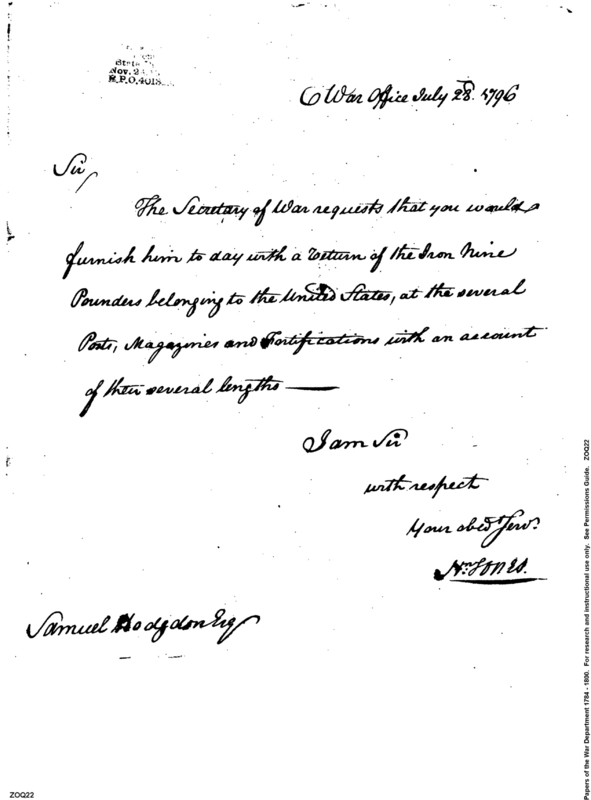 State
Nov. 2
R.P.O. 4018
War Office July 28. 1796
Sir
The Secretary of War requests that you would
furnish him to day with a return of the Iron Nine
Pounders belonging to the United States, at the several
Posts, Magazines and Fortifications with an account
of their several lengths —
I am Sir
with respect
Your obedt Servt
Nn. JONES.
Samuel Hodgdon Esq
Papers of the War Department 1784 - 1800. For research and instructional use only. See Permissions Guide. ZOQ22
ZOQ22